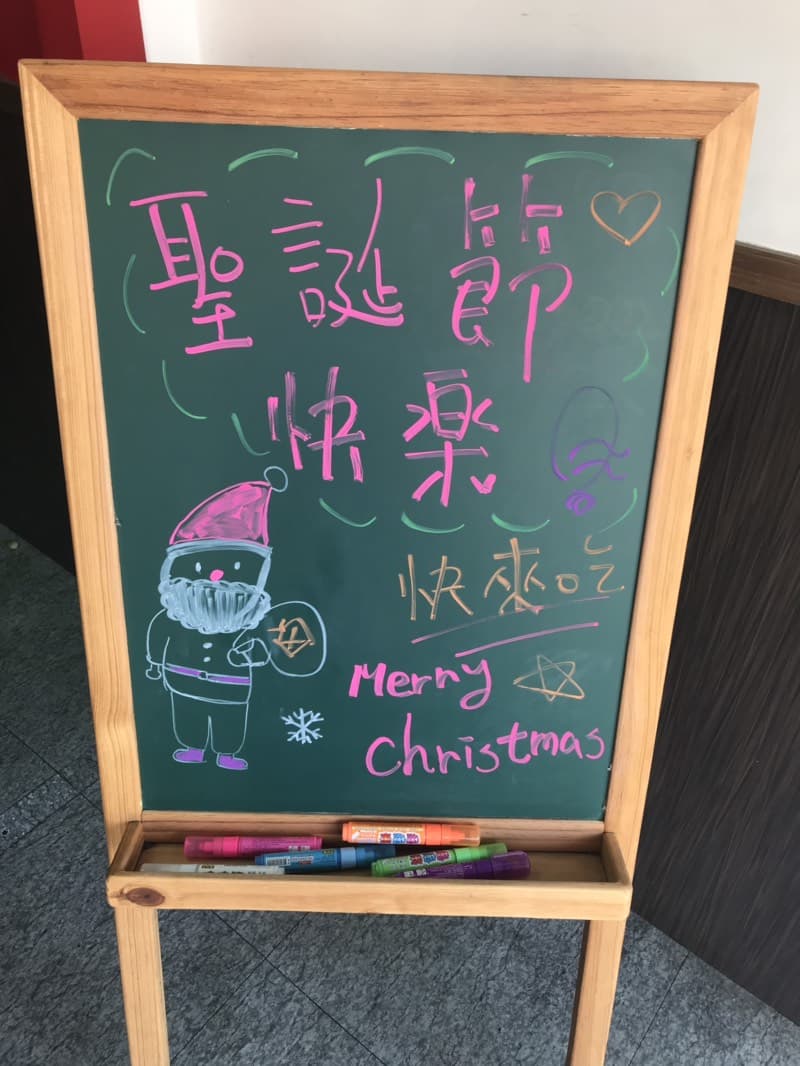 聖誕節
快楽
快來吃
Merry
Christmas